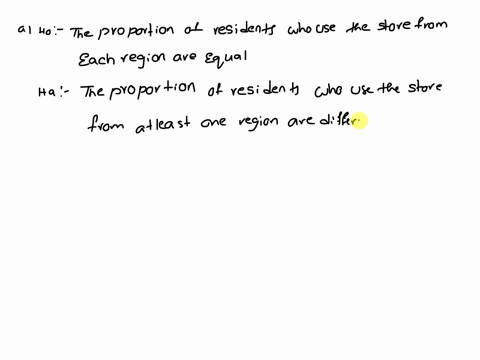 a) Ho:- The proportion of residents who use the store from
Each region are Equal
Ha:- The proportion of residents who use the store
from atleast one region are differ